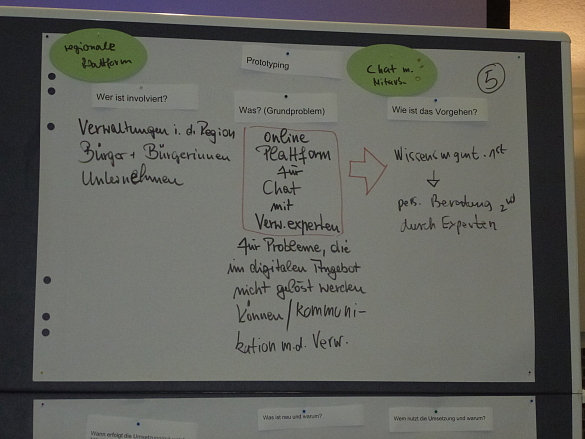 regionale
Plattform
Prototyping
Chat m.
Mitarb.
5
Wer ist involviert?
Was? (Grundproblem)
Wie ist das Vorgehen?
Verwaltungen i. d. Region
Bürger + Bürgerinnen
Unternehmen
online
Plattform
für
Chat
mit
Verw.experten
für Probleme, die
im digitalen Angebot
nicht gelöst werden
können / kommuni-
kation m. d. Verw.
Wissensmgmt. 1st
pers. Beratung 2nd
durch Experten
Was ist neu und warum?
Wem nutzt die Umsetzung und warum?
Wann erfolgt die Umsetzung